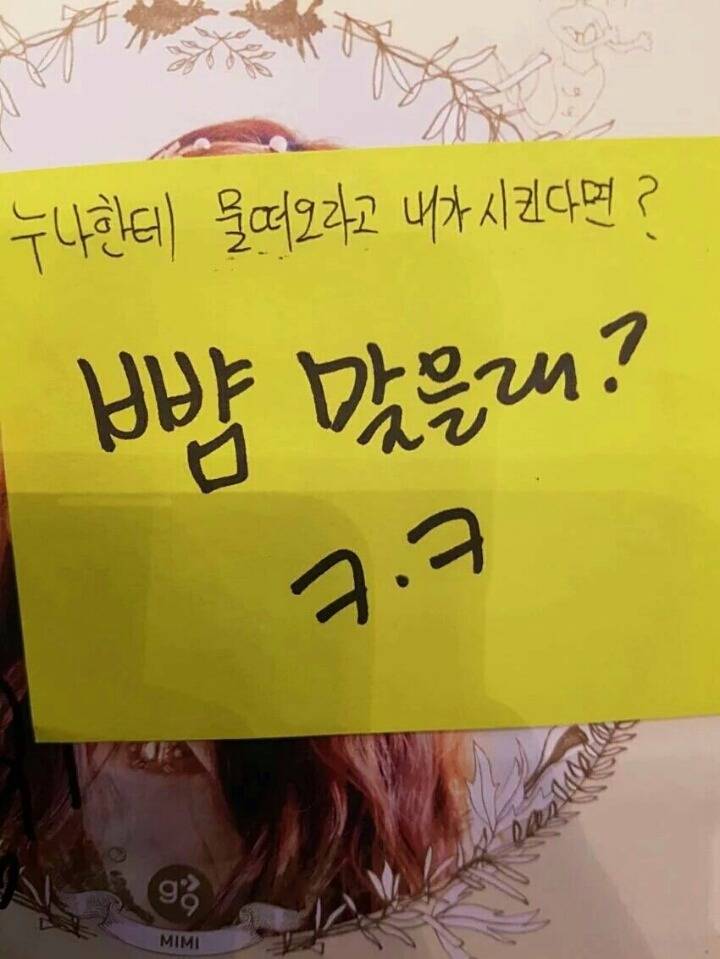 누나한테 물떠오라고 내가시킨다면?
뺨 맞을래?
ㅋ.ㅋ
g9
MIMI